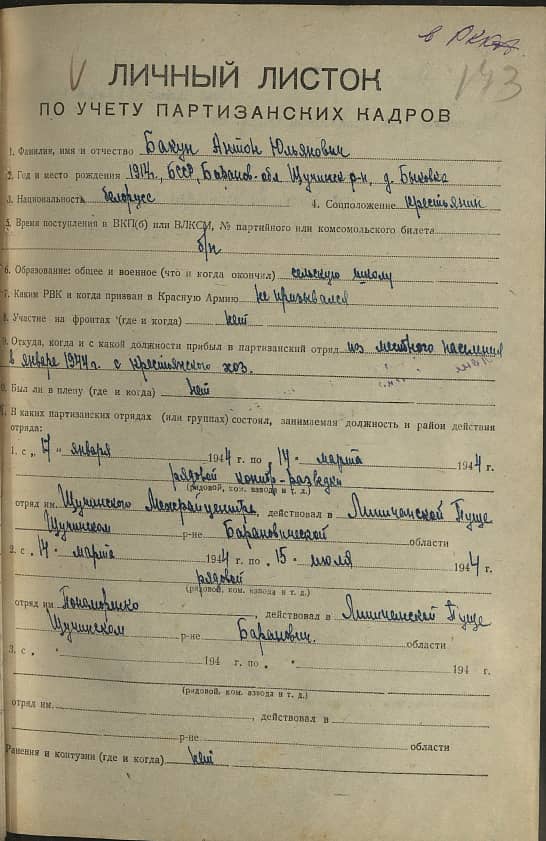 в РККА.
V
143
ЛИЧНЫЙ ЛИСТОК
ПО УЧЕТУ ПАРТИЗАНСКИХ КАДРОВ
1. Фамилия, имя и отчество Бакун Антон Юльянович
2. Год и место рождения 1914г., БССР, Баранов. обл. Щучинск р-н, д. Быковка
3. Национальность белорусс 4. Соцположение крестьянин
5. Время поступления в ВКП(б) или ВЛКСМ, № партийного или комсомольского билета
б/п
6. Образование: общее и военное (что и когда окончил) сельскую школу
7. Каким РВК и когда призван в Красную Армию не призывался
8. Участие на фронтах (где и когда) нет
9. Откуда, когда и с какой должности прибыл в партизанский отряд из местного населения
в январе 1944 г. с крестьянского хоз.
0. Был ли в плену (где и когда) нет
1. В каких партизанских отрядах (или группах) состоял, занимаемая должность и район действия
отряда:
1. с „17" января 1944 г. по 14" марта 1944 г.
рядовой контр-разведки
(рядовой, ком. взвода и т. д.)
отряд им. Щучинского Межрайцентра, действовал в Липичанской Пуще
Щучинском р-не Барановической области
2. с 14" марта 1944 г. по 15" июля 1944 г.
рядовой
(рядовой, ком. взвода и т. д.)
отряд им Пономоренко, действовал в Липичанской Пуще
Щучинском р-не Баранович. области
3. с „ " 194 г. по „ " 194 г.
(рядовой, ком. взвода и т. д.)
отряд им. , действовал в
р-не области
Ранения и контузии (где и когда) нет